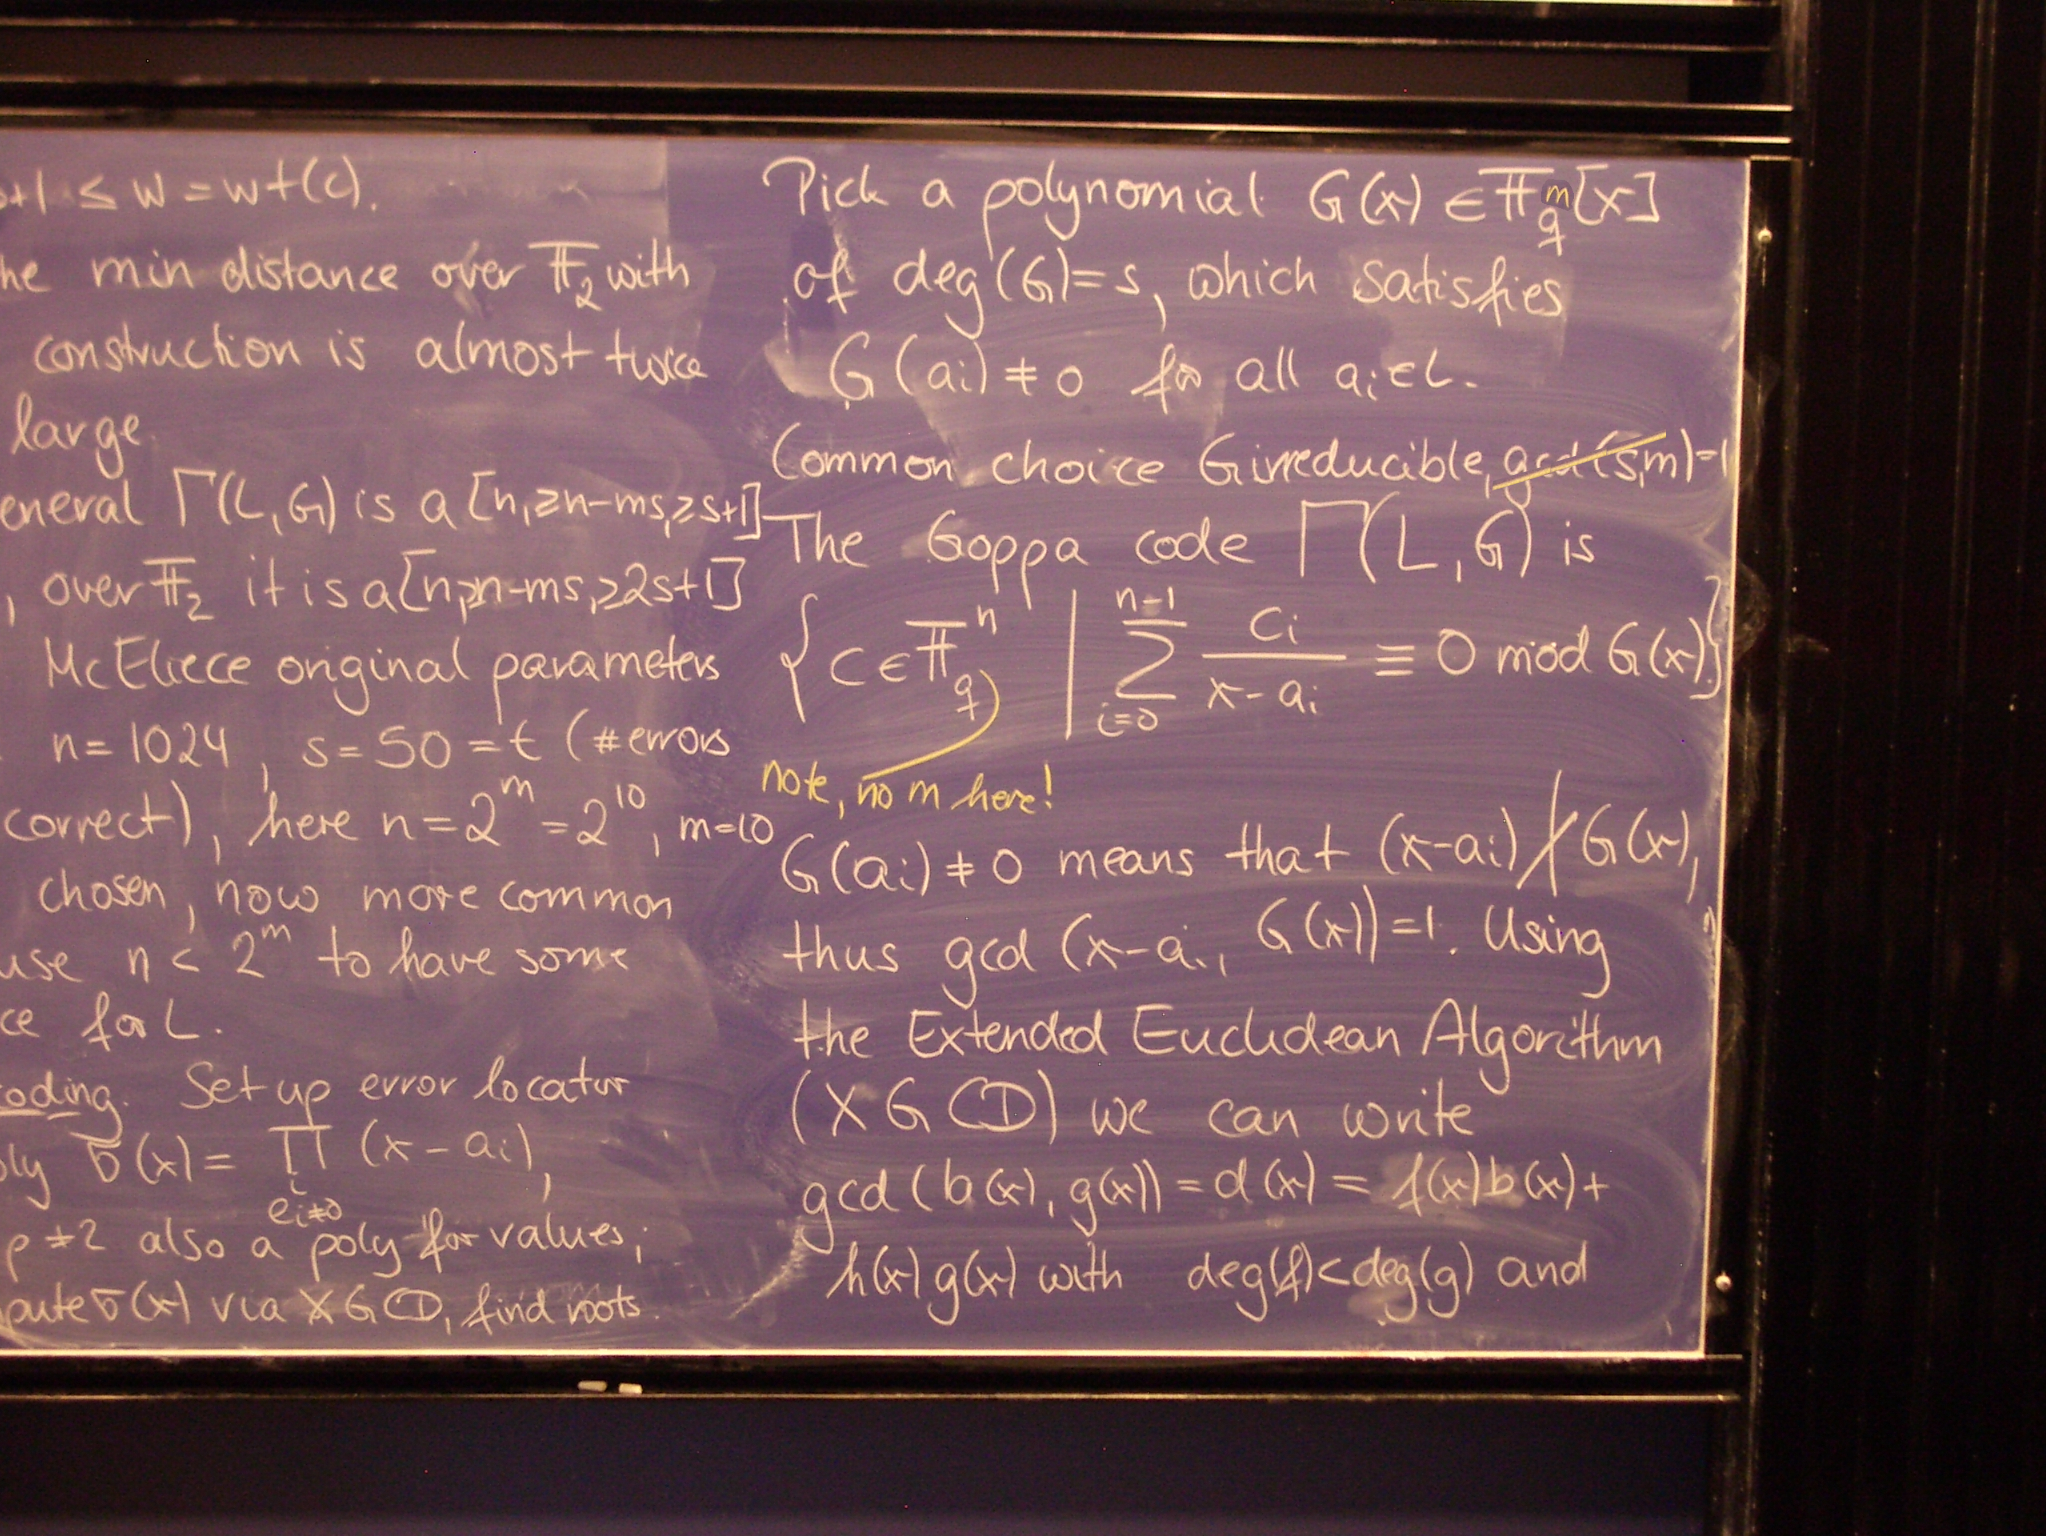 +1 ≤ w = wt(c).
he min distance over 𝔽₂ with
construction is almost twice
large
eneral Γ(L,G) is a [n,≥n-ms,≥s+1]
, over 𝔽₂ it is a [n,≥n-ms,≥2s+1]
McEliece original parameters
n=1024, s=50=t (#errors
correct), here n=2^m=2^10, m=10
chosen, now more common
use n < 2^m to have some
ce for L.
oding. Set up error locator
oly σ(x) = ∏_{i, e_i≠0} (x-a_i),
p≠2 also a poly for values;
pute σ(x) via XGCD, find roots.
Pick a polynomial G(x) ∈ 𝔽_{q^m}[x]
of deg(G)=s, which satisfies
G(a_i) ≠ 0 for all a_i ∈ L.
Common choice G irreducible, gcd(s,m)=1
The Goppa code Γ(L,G) is
{c ∈ 𝔽_q^n | ∑_{i=0}^{n-1} c_i/(x-a_i) ≡ 0 mod G(x)}
note, no m here!
G(a_i) ≠ 0 means that (x-a_i) ∤ G(x),
thus gcd (x-a_i, G(x))=1. Using
the Extended Euclidean Algorithm
(XGCD) we can write
gcd(b(x), g(x)) = d(x) = f(x)b(x)+
h(x)g(x) with deg(f)<deg(g) and